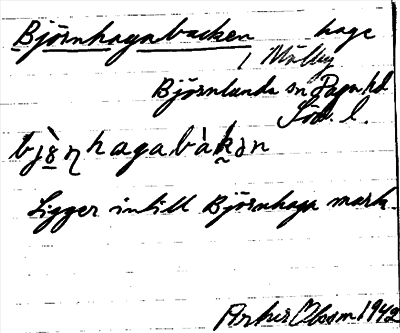 Björnhagabacken hage
i Mälby
Björnlunda sn Daga hd
Söd. l.
bjö̀ŋhagabàkən
Ligger intill Björnhaga mark.
Olsson 1942